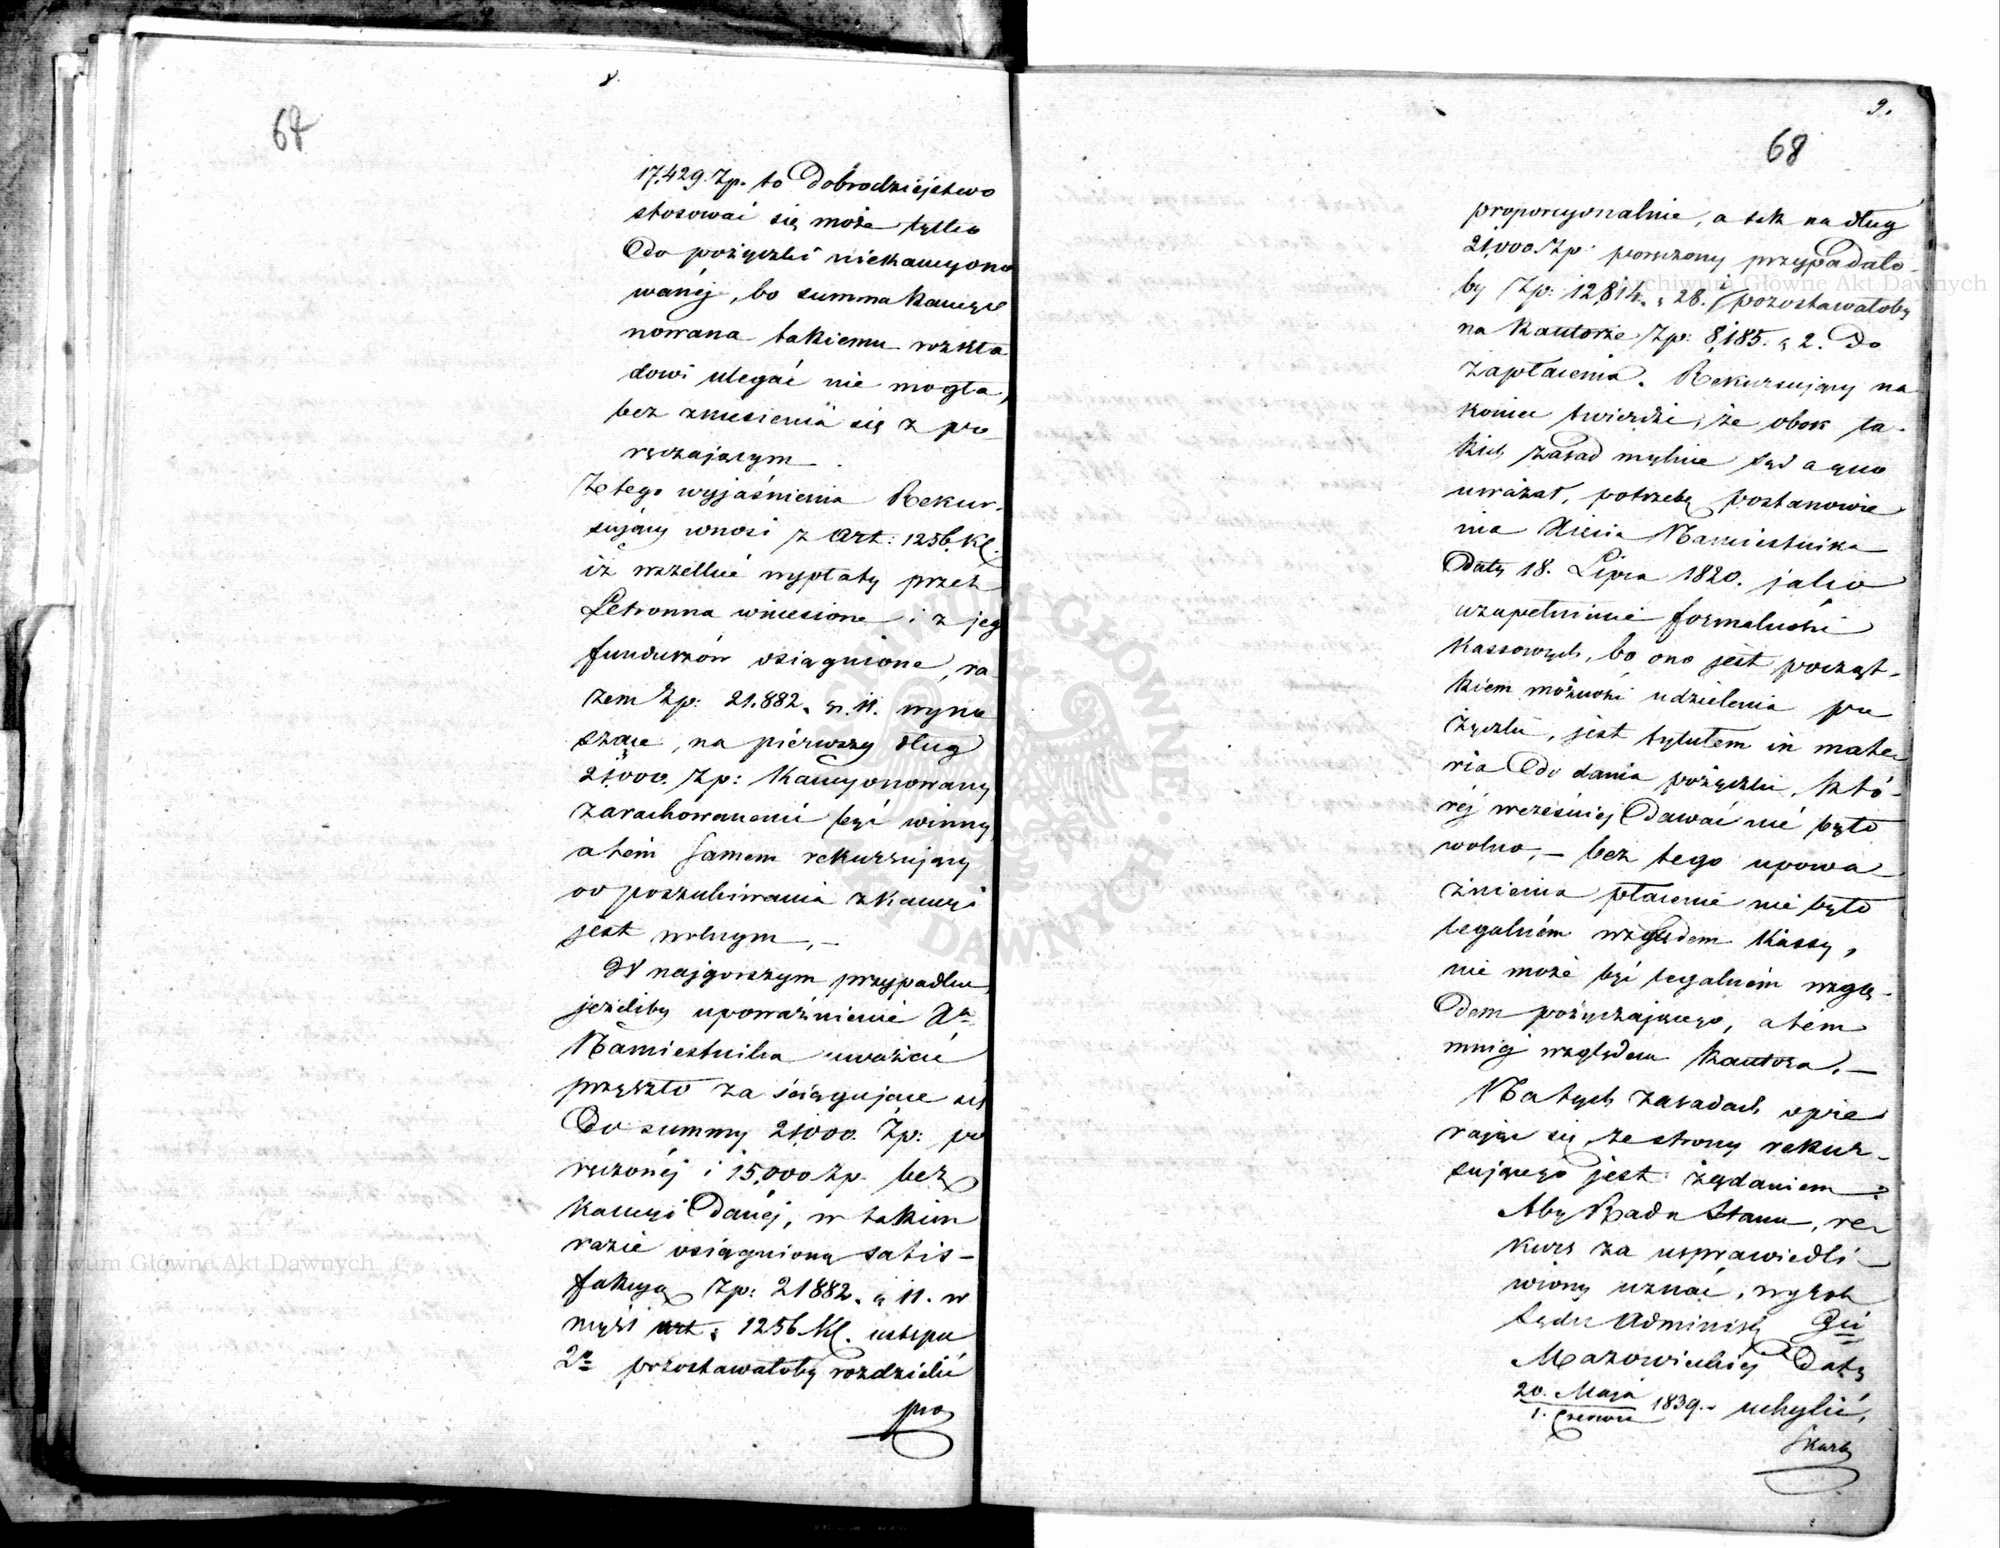 8.
68
17,429. Zp. to Dobrodziejstwo
stosować się może tylko
Do pożyczki niekaucyono
wanéj, bo summa kaucyo
nowana takiemu rozkła
dowi ulegać nie mogła,
bez zniesienia się z po-
ręczającym.
Ze tego wyjaśnienia Rekur-
sujący wnosi z Art: 1256. Kl.
iż wszelkie wypłaty przez
Letronna wniesione i z jeg
funduszów osiągnione, ra
zem Zp: 21.882. gr. 11. wyno
szące, na pierwszy dług
21,000. Zp: Kaucyonowany
zarachowanemi być winny
a tém samem rekursujący
od poszukiwania z Kaucyi
jest wolnym,-
W najgorszym przypadku,
jeżeliby upoważnienie Xa
Namiestnika uważać
przyszło za ściągające się
Do summy 21,000. Zp: po
ręczonéj i 15,000 Zp. bez
Kaucyi Danéj, w takim
razie osiągnioną satis-
fakcyą Zp: 21882. g 11. w
myśl art: 1256. Kl. ustępu
2o pozostawałoby rozdzielić
pro
9.
68
proporcyonalnie, a tak na dług
21,000. Zp: poręczony przypadało-
by Zp: 12,814. g 28. pozostawałoby
na Kautorze Zp: 8,185. g 2. Do
zapłacenia. Rekursujący na
koniec twierdzi, że obok ta-
kich zasad mylnie Sąd a quo
uważał, potrzebę postanowie
nia Xięcia Namiestnika
Daty 18. Lipca 1820. jako
uzupełnienie formalności
Kassowych, bo ono jest począt-
kiem możności udzielenia po
życzki, jest tytułem in mate
ria Do dania pożyczki, któ-
réj wcześniéj Dawać nie było
wolno,- bez tego upowa-
żnienia płacenie nie było
legalném względem Kassy,
nie może być legalném wzglę-
Dem pożyczającego, a tém
mniéj względem Kautora.-
Na tych zasadach opie
rając się, ze strony rekur-
sującego jest żądaniem
Aby Rada Stanu, re-
kurs za usprawiedli-
wiony uznać, wyrok
Sądu Administ. Gii
Mazowieckiéj Daty
20. Maja
1. Czerwca 1839. uchylić,
Skarb
Archiwum Główne Akt Dawnych
Archiwum Główne Akt Dawnych